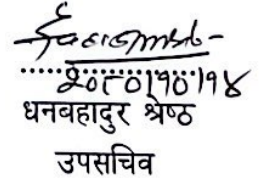 २०८०।१०।१४
धनबहादुर श्रेष्ठ
उपसचिव